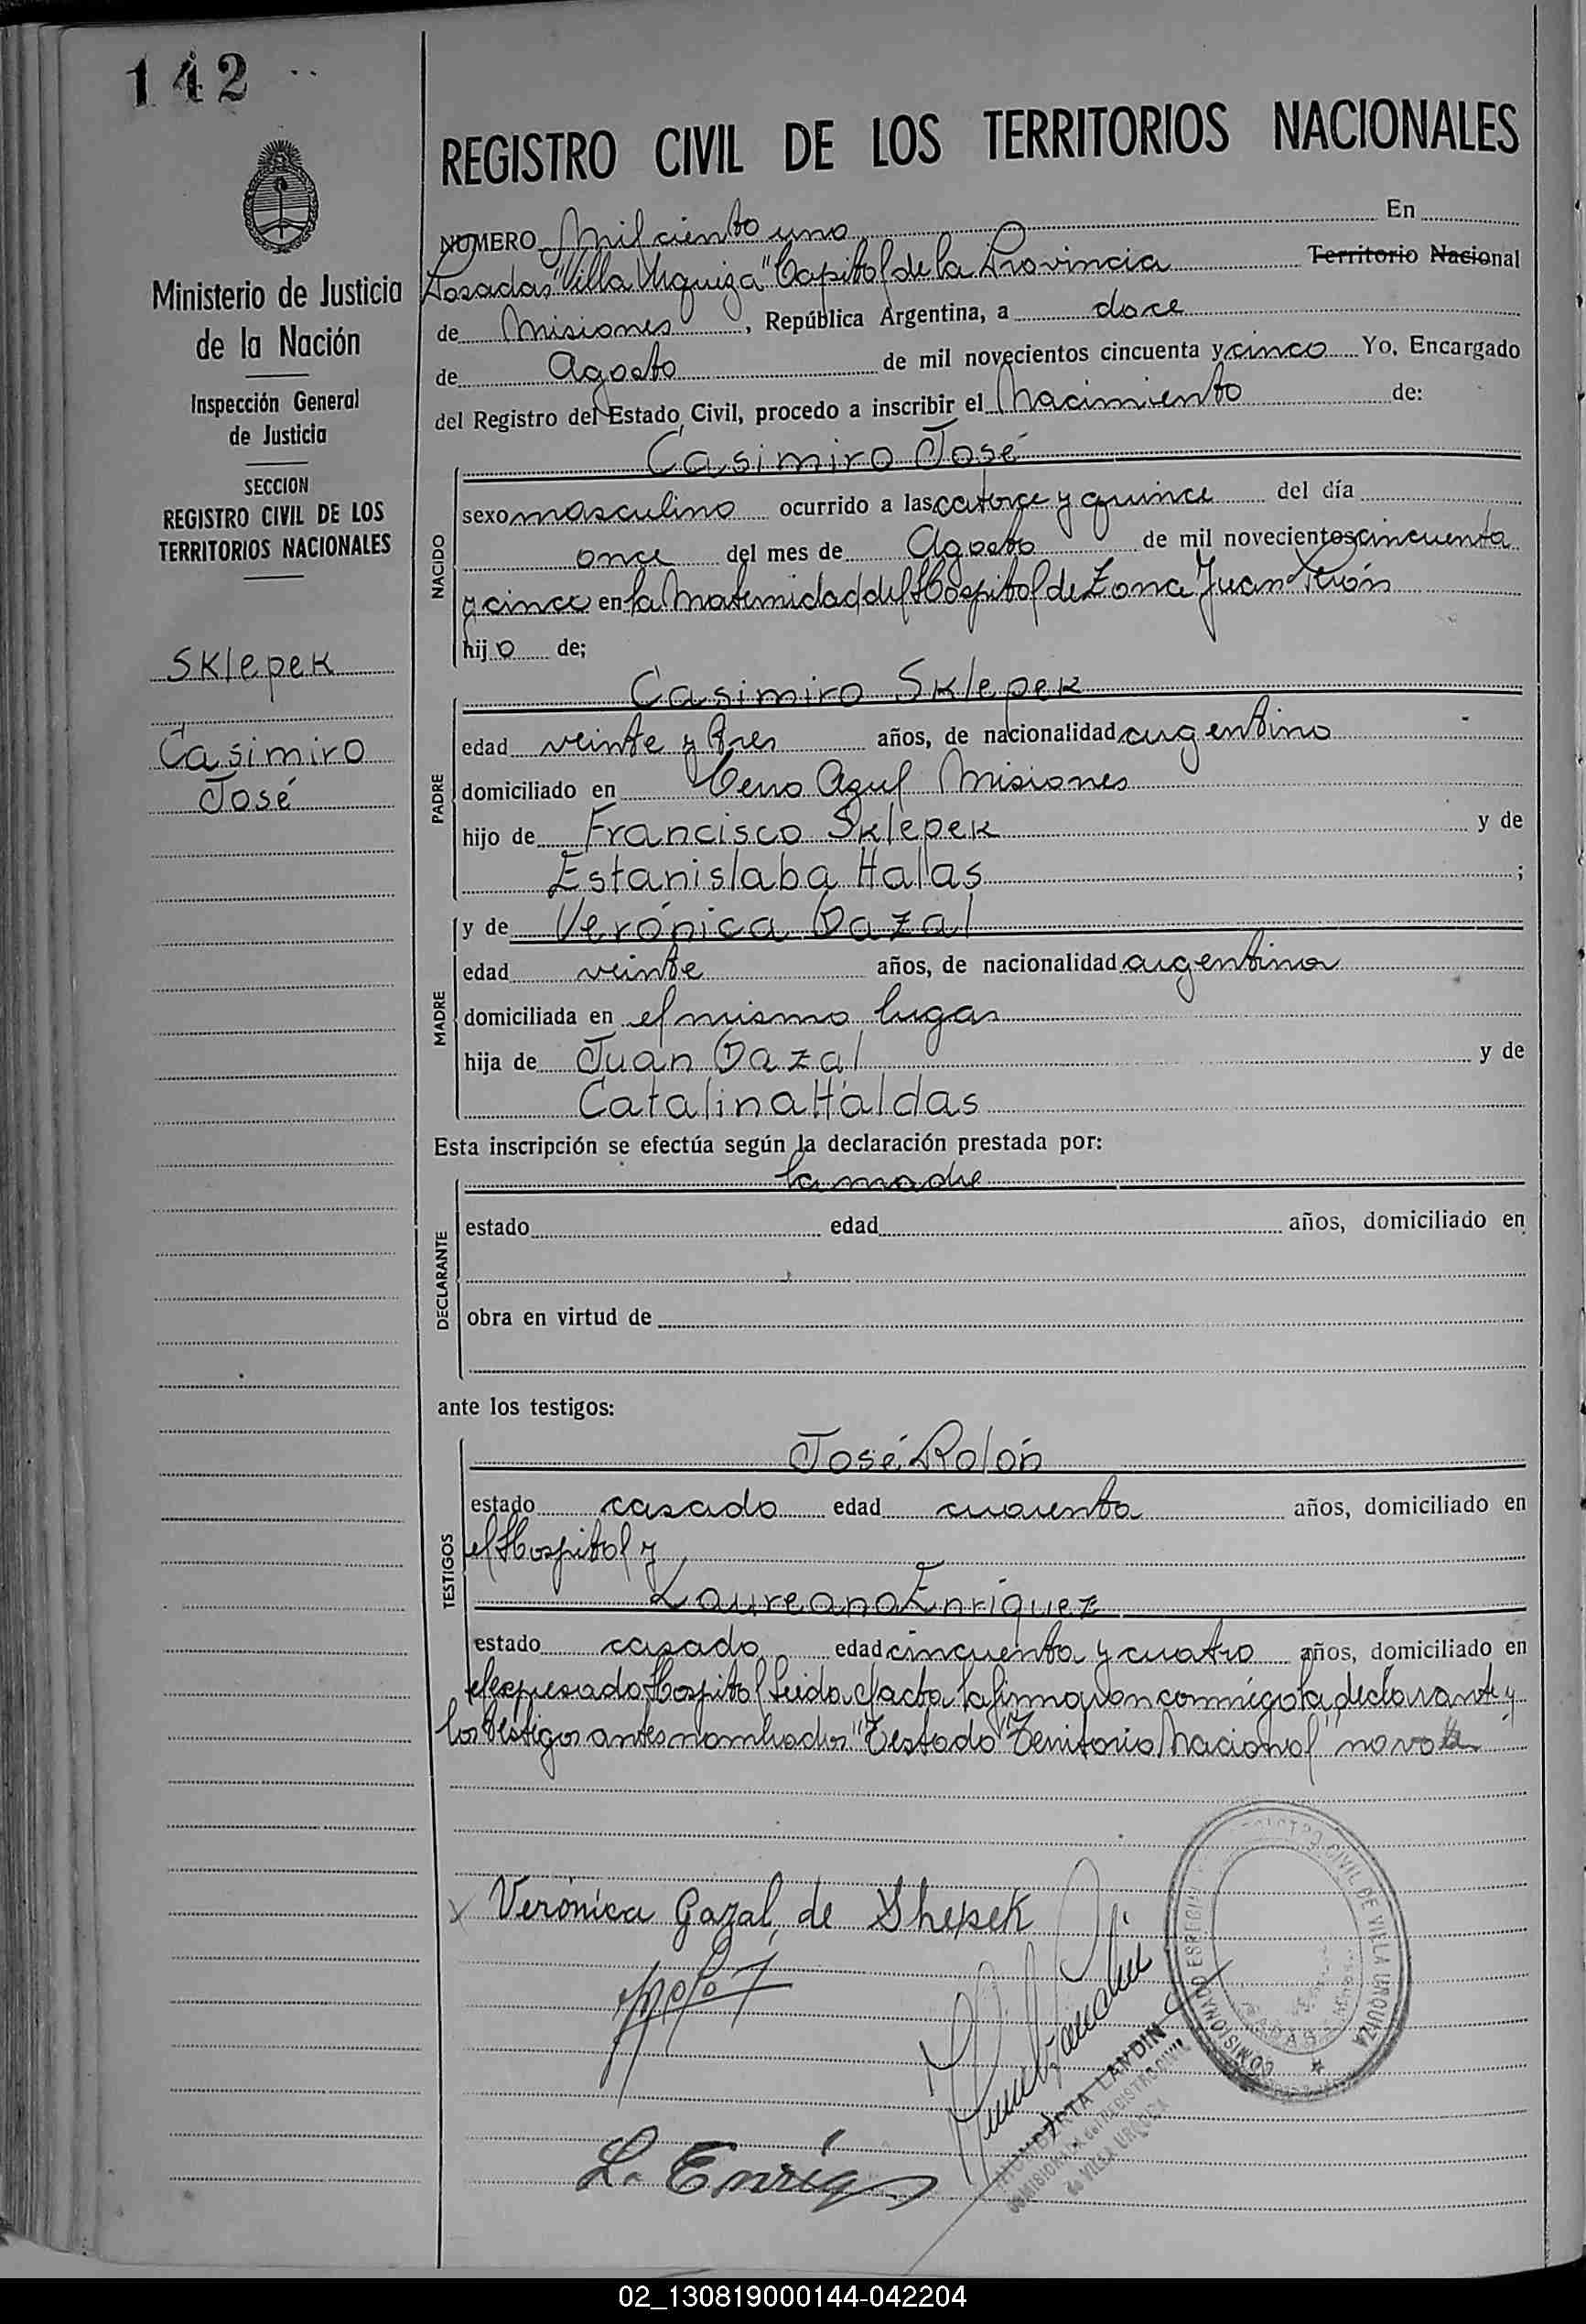 142
REGISTRO CIVIL DE LOS TERRITORIOS NACIONALES
Ministerio de Justicia
de la Nación
Inspección General
de Justicia
SECCION
REGISTRO CIVIL DE LOS
TERRITORIOS NACIONALES
Sklepek
Casimiro
José
NUMERO Mil ciento uno En
Posadas "Villa Urquiza" Capital de la Provincia Territorio Nacional
de Misiones, República Argentina, a doce
de Agosto de mil novecientos cincuenta y cinco Yo, Encargado
del Registro del Estado Civil, procedo a inscribir el Nacimiento de:
Casimiro José
NACIDO
sexo masculino ocurrido a las catorce y quince del día
once del mes de Agosto de mil novecientos cincuenta
y cinco en la Maternidad del Hospital de Zona Juan Perón
hijo de;
Casimiro Sklepek
PADRE
edad veinte y tres años, de nacionalidad argentino
domiciliado en Cerro Azul Misiones
hijo de Francisco Sklepek y de
Estanislaba Halas ;
MADRE
y de Verónica Gazal
edad veinte años, de nacionalidad argentina
domiciliada en el mismo lugar
hija de Juan Gazal y de
Catalina Haldas
Esta inscripción se efectúa según la declaración prestada por:
la madre
DECLARANTE
estado edad años, domiciliado en
obra en virtud de
ante los testigos:
José Rolón
TESTIGOS
estado casado edad cuarenta años, domiciliado en
el Hospital y
Laureano Enriquez
estado casado edad cincuenta y cuatro años, domiciliado en
el expresado Hospital Leida el acta la firmaron conmigo la declarante y
los testigos antes nombrados "Testado" Territorio Nacional" no vale
x Verónica Gazal de Shepek
L. Enríq
REGISTRO CIVIL DE VILLA URQUIZA
COMISIONADO ESPECIAL
POSADAS
MISIONES
LANDIN
COMISIONADA del REGISTRO CIVIL
de VILLA URQUIZA
02_130819000144-042204